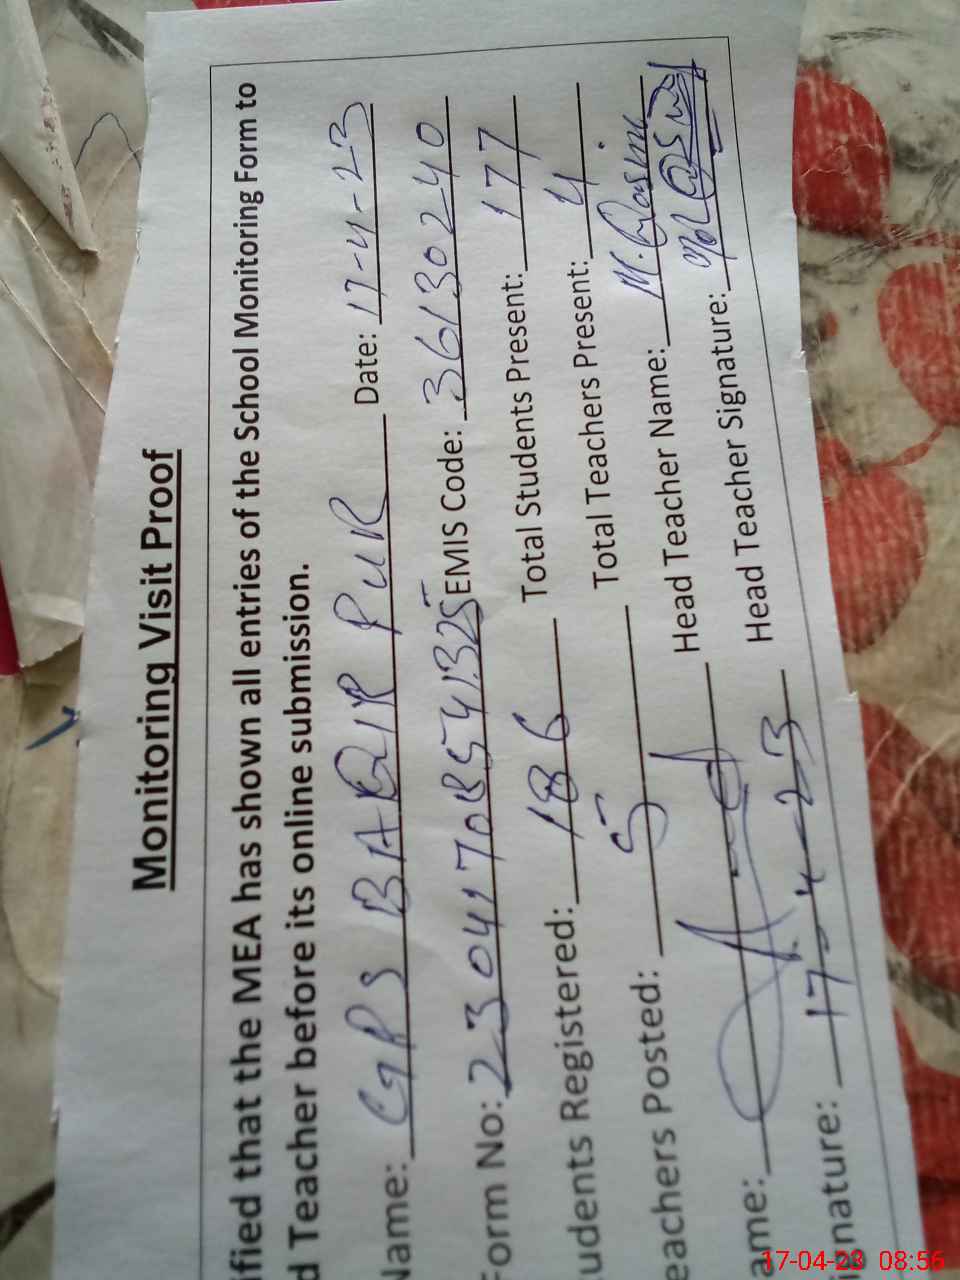 Monitoring Visit Proof
ified that the MEA has shown all entries of the School Monitoring Form to
d Teacher before its online submission.
Name: GPS BAQIR PUR Date: 17-4-23
Form No: EMIS Code: 36130240
udents Registered: 186 Total Students Present: 177
eachers Posted: 5 Total Teachers Present: 4
ame: Head Teacher Name: M. Qasim
nature: 17-4-23 Head Teacher Signature:
17-04-23 08:56